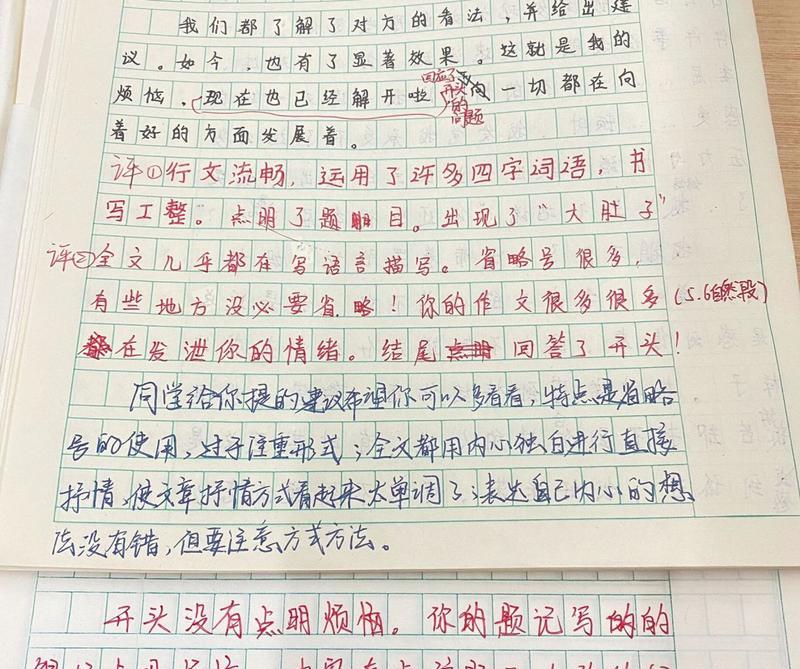 我们都了解了对方的看法，并给出建
议。如今，也有了显著效果。这就是我的
烦恼，现在也已经解开啦，一切都在向
着好的方面发展着。
回应了
开头
的
问题
评①行文流畅，运用了许多四字词语，书
写工整。点明了题目。出现了“大肚子”
评②全文几乎都在写语言描写。省略号很多，
有些地方没必要省略！你的作文很多很多(5.6自然段)
都在发泄你的情绪。结尾回答了开头！
同学给你提的建议希望你可以多看看，特点是省略
号的使用，过于注重形式；全文都用内心独白进行直接
抒情，使文章抒情方式看起来太单调了；表达自己内心的想
法没有错，但要注意方式方法。
开头没有点明烦恼。你的题记写的的